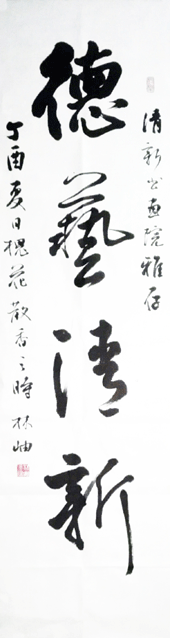 清新书画院雅存
德藝清新
丁酉夏日槐花散香之時 林岫